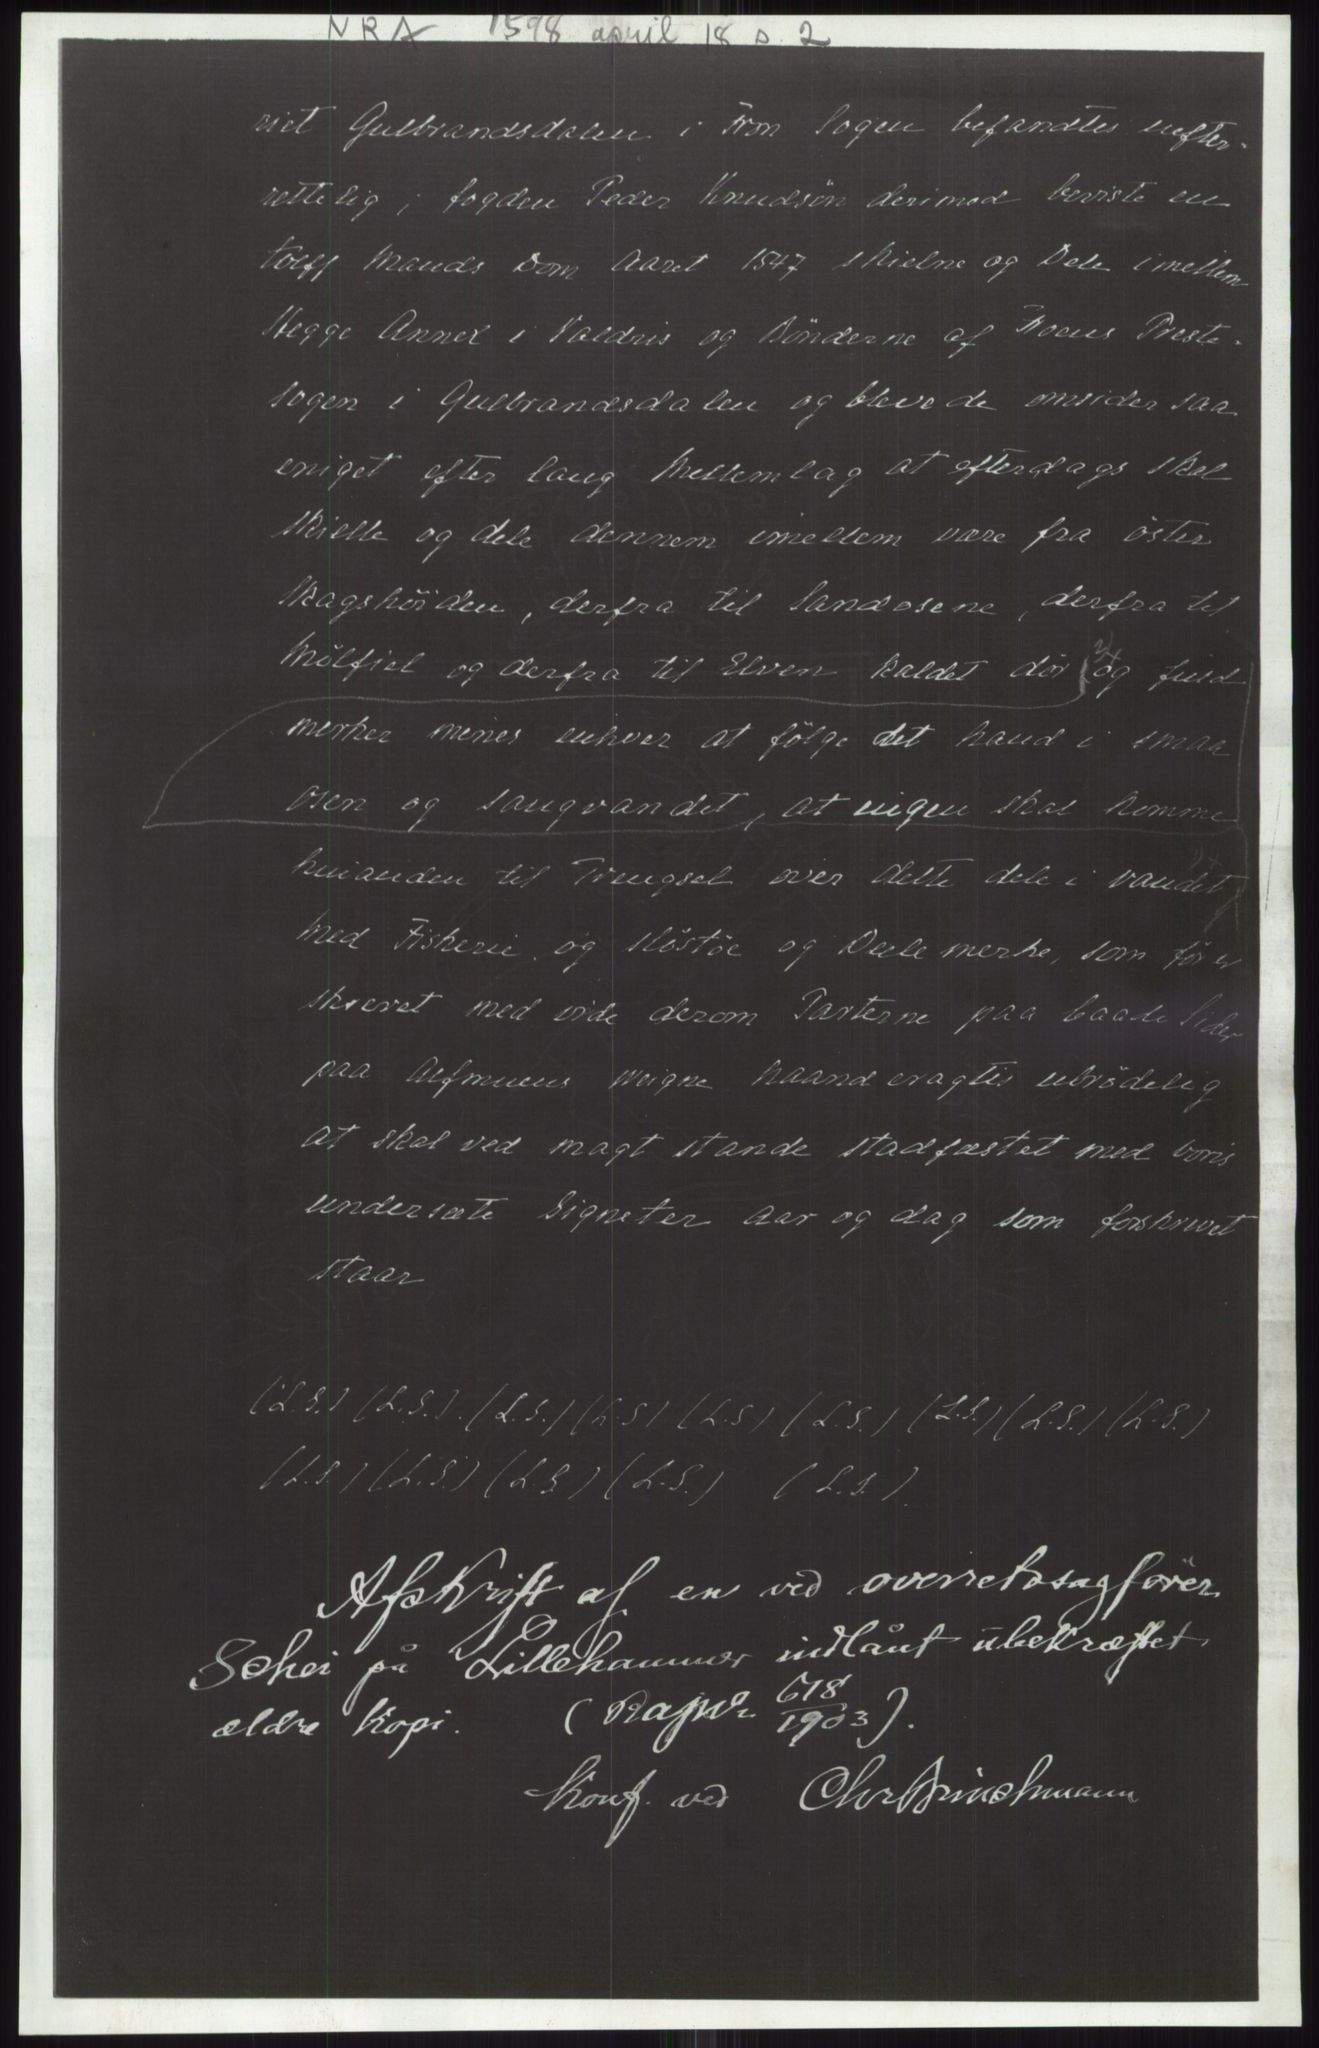 NRA 1598 april 18 s. 2
vid Gulbrandsdalen i Fron Sogen befandtes uefter-
rettelig; fogden Peder Knudsøn derimod beviste en
tolff Mands Dom Aaret 1547 skielne og Dele imellem
Hegge Annex i Valdris og Bönderne af Froens Preste-
sogen i Gulbrandsdalen og bleve de omsider saa
eniget efter lang Mellemlag at efterdags skal
skielle og dele dennem imellem være fra öster
Skagshöiden, derfra til Sandosene, derfra til
Mölfiel og derfra til Elven kaldet dör og field
merker menes enhver at fölge det hand i smaa
osen og Langvandet, at ingen skal komme
hinanden til Trengsel over dette dele i vandet
med Fiskerie og slöstöe og Deele merke, som för er
skrevet med vide derom Parterne paa baade Sider
paa haand eragtis ubrödelig
at skal ved magt stande stadfæstet med voris
undersatte Signeter Aar og dag som forskrevet
staar
(L.S.) (L.S.). (L.S.) (L.S) (L.S) (L.S.) (L.S.) (L.S.) (L.S.)
(L.S.) (L.S.) (L.S) (L.S.) (L.S.).
Afskrift af en ved overretssagförer
Schei på Lillehammer indlånt ubekræftet
ældre Kopi. (Rajour 618/1903).
Konf. ved Chr Brinchmann